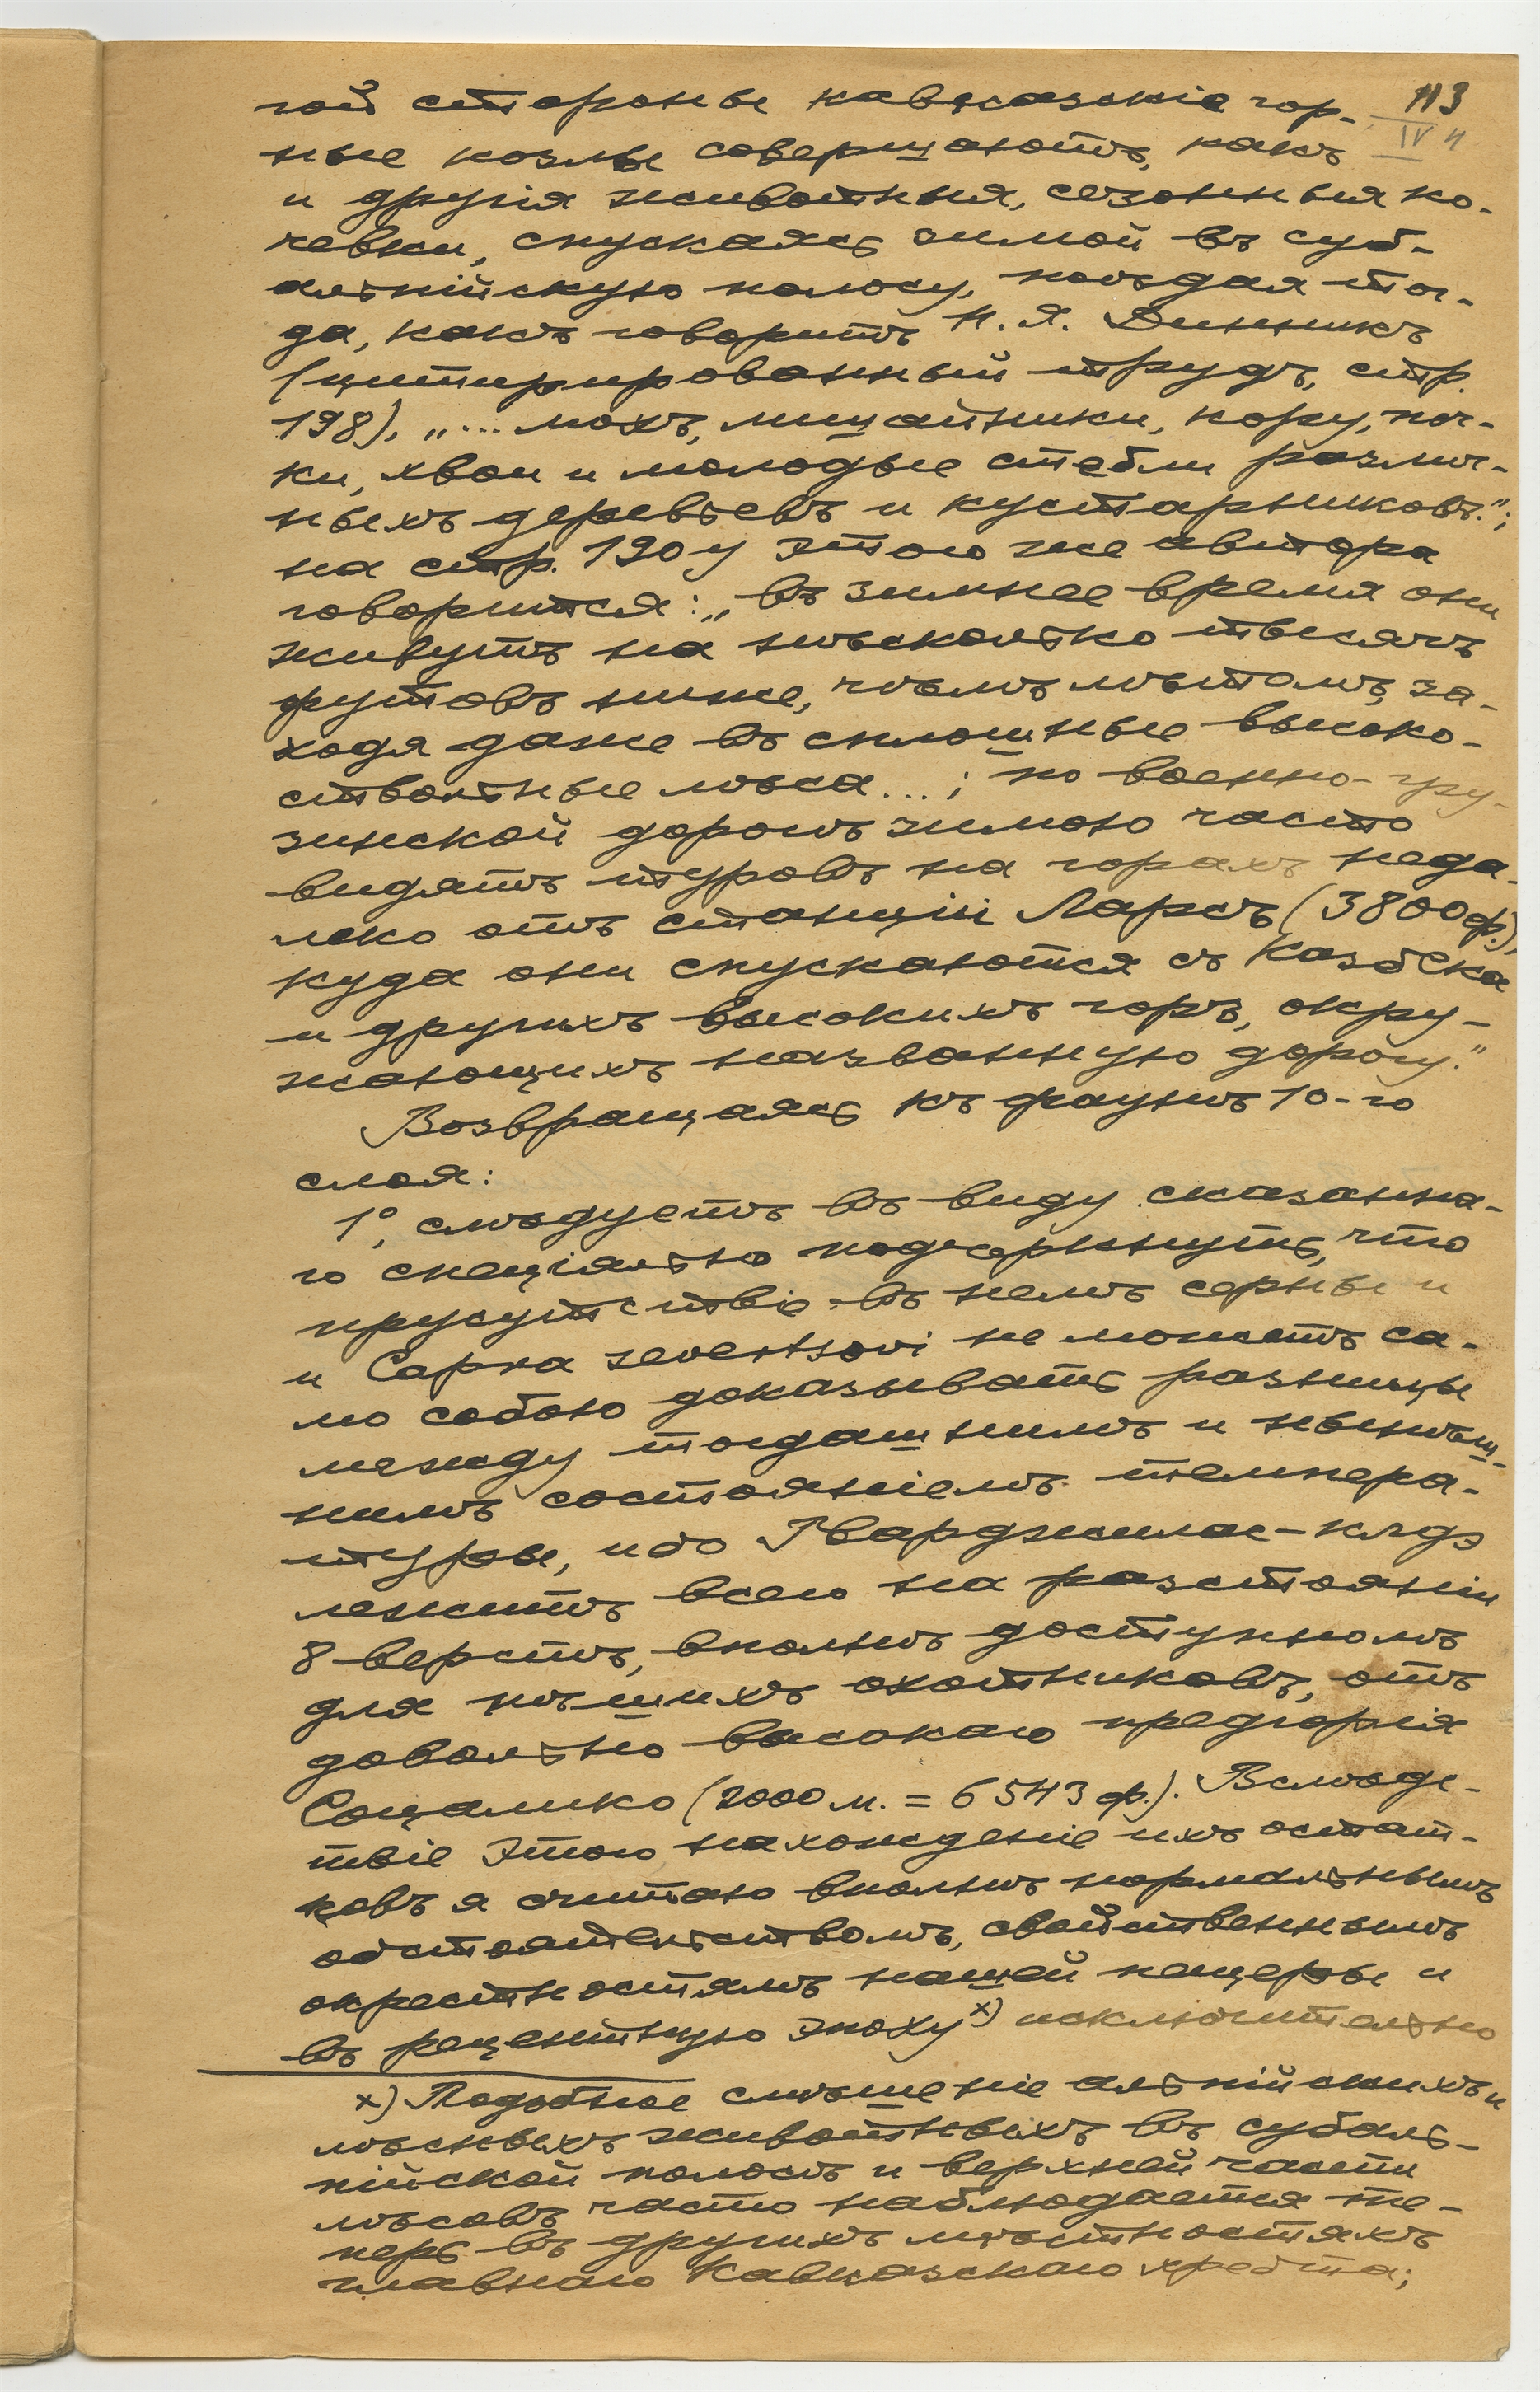 113
IV ч
гой стороны кавказскіе гор-
ные козлы совершаютъ, какъ
и другія животныя, сезонныя ко-
чевки, спускаясь зимой въ суб-
альпійскую полосу, поѣдая тог-
да, какъ говоритъ Н. Я. Динникъ
(цитированный трудъ, стр.
198), „... мохъ, лишайники, кору, поч-
ки, хвои и молодые стебли различ-
ныхъ деревьевъ и кустарниковъ.";
на стр. 190 у этого же автора
говорится: „въ зимнее время они
живутъ на нѣсколько тысячъ
футовъ ниже, чѣмъ лѣтомъ, за-
ходя даже въ сплошные высоко-
ствольные лѣса...; по военно-гру-
зинской дорогѣ зимою часто
видятъ туровъ на горахъ неда-
леко отъ станціи Ларсъ (3800 ф.),
куда они спускаются съ Казбека
и другихъ высокихъ горъ, окру-
жающихъ названную дорогу."
Возвращаясь къ фаунѣ 10-го
слоя:
1°, слѣдуетъ въ виду сказанна-
го спеціально подчеркнуть, что
присутствіе въ немъ серны и
и Capra severtsovi не можетъ са-
мо собою доказывать разницы
между тогдашнимъ и нынѣш-
нимъ состояніемъ температ-
уры, ибо Гварджилас-клдэ
лежитъ всего на разстояніи
8 верстъ, вполнѣ доступномъ
для пѣшихъ охотниковъ, отъ
довольно высокаго предгорія
Соцалико (2000 м. = 6543 ф.). Вслѣдс-
твіе этого нахожденіе ихъ остат-
ковъ я считаю вполнѣ нормальнымъ
обстоятельствомъ, свойственнымъ
окрестностямъ нашей пещеры и
въ рецентную эпоху x) исключительно
x) Подобное смѣшеніе альпійскихъ и
лѣсныхъ животныхъ въ субаль-
пійской полосѣ и верхней части
лѣсовъ часто наблюдается те-
перь въ другихъ мѣстностяхъ
главнаго Кавказскаго хребта;